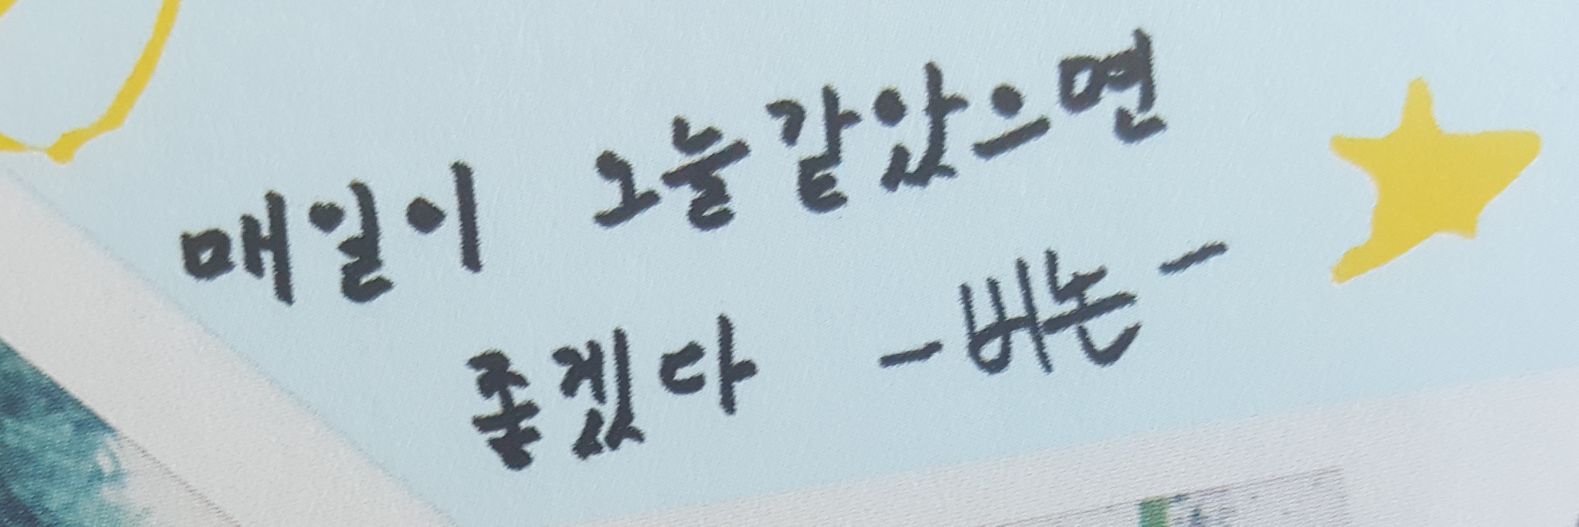 매일이 오늘같았으면
좋겠다 -버논-